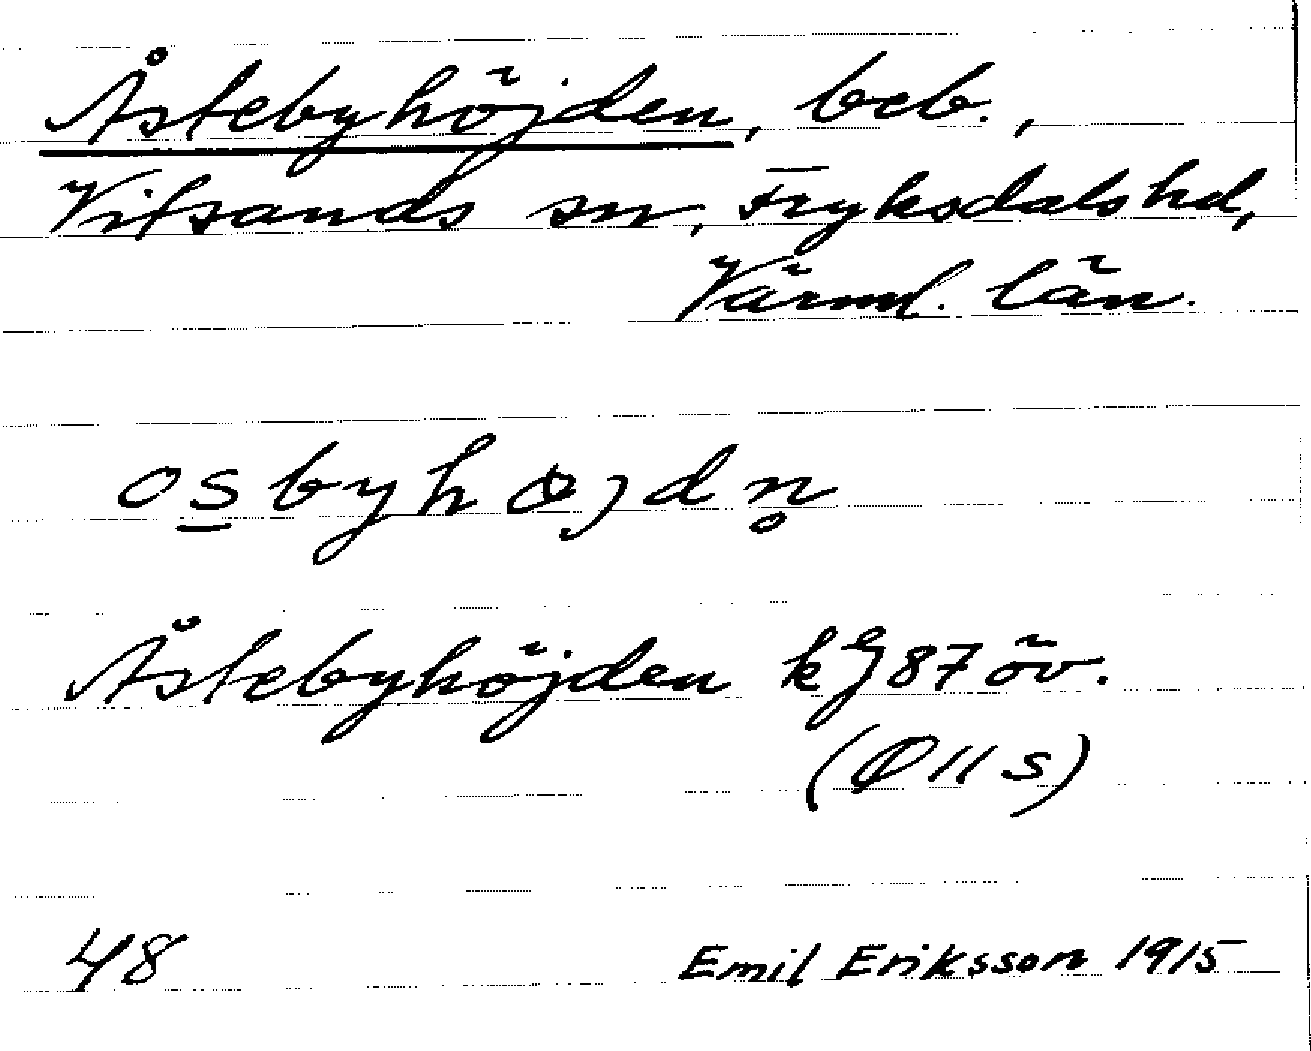 Åstebyhöjden, beb.,
Vitsands sn, Fryksdals hd,
Värml. län.
osbyhøjdn̥
Åstebyhöjden kg 87 öv.
(Ø 11 s)
48 Emil Eriksson 1915